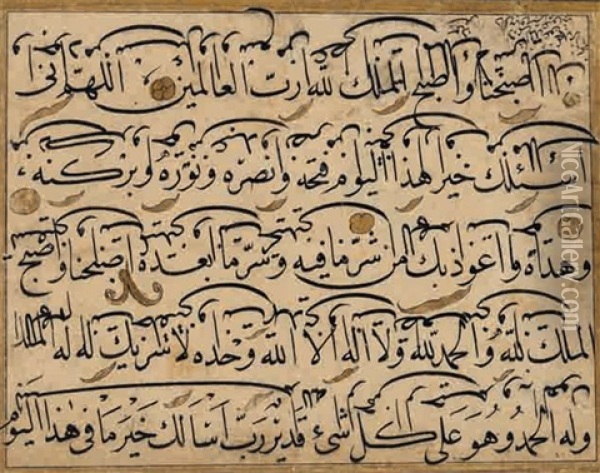 أصبحنا وأصبح الملك لله رب العالمين اللهم إني
أسئلك خير هذا اليوم فتحه ونصره ونوره وبركته
وهداه وأعوذ بك من شر ما فيه وشر ما بعده أصبحنا وأصبح
الملك لله والحمد لله ولا إله إلا الله وحده لا شريك له له الملك
وله الحمد وهو على كل شيء قدير رب أسألك خير ما في هذا اليوم
NICEArtGallery.com